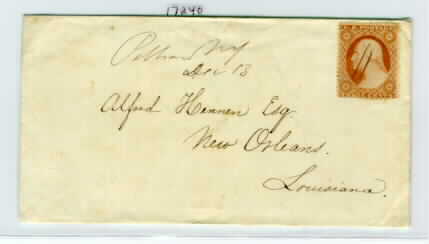 17240
Pelham NY
U.S. POSTAGE
Dec 13
Alfred Hennen Esq
New Orleans.
Louisiana.